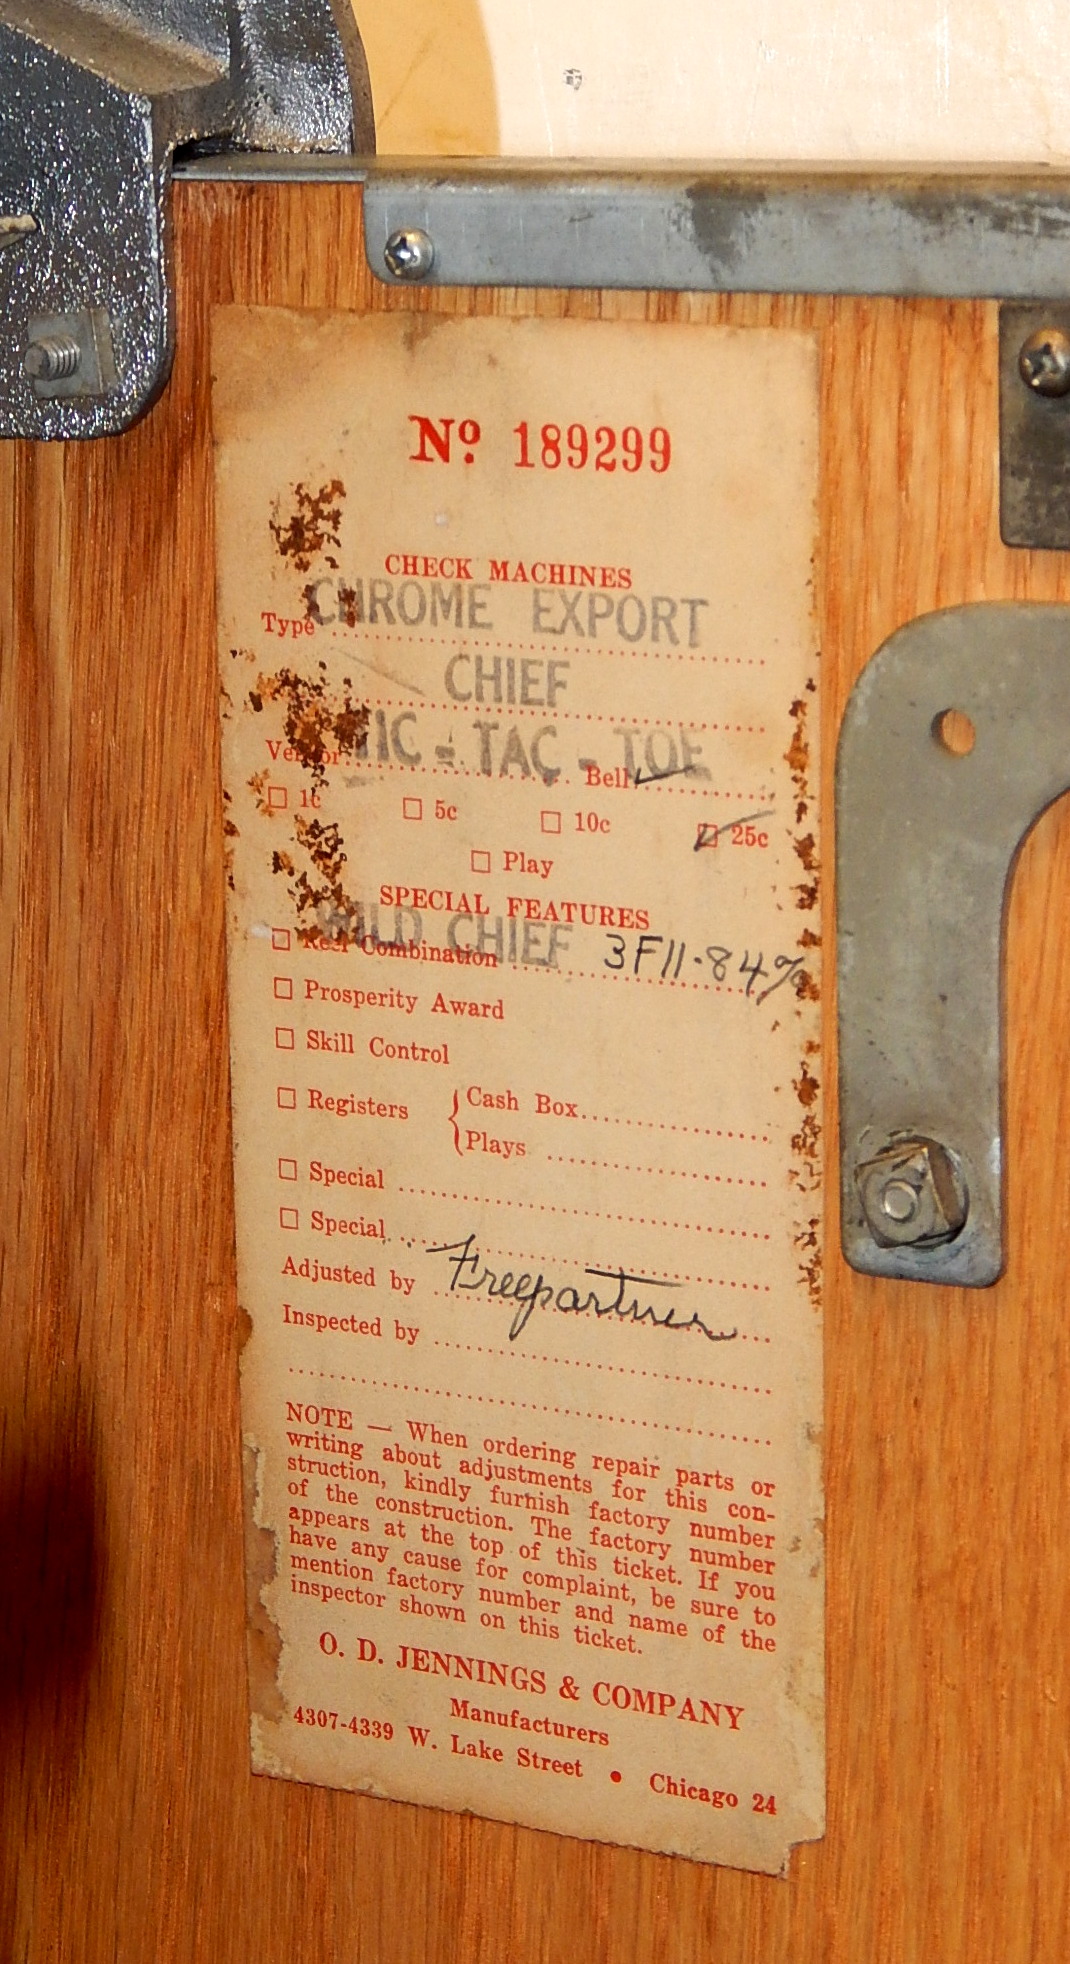 Nº 189299
CHECK MACHINES
CHROME EXPORT
Type
CHIEF
TIC - TAC - TOE
Vendor Bell ✓
☐ 1c ☐ 5c ☐ 10c ☑ 25c
☐ Play
SPECIAL FEATURES
WILD CHIEF 3F11-84%
☐ Reel Combination
☐ Prosperity Award
☐ Skill Control
☐ Registers { Cash Box
Plays
☐ Special
☐ Special
Adjusted by Freepartner
Inspected by
NOTE — When ordering repair parts or
writing about adjustments for this con-
struction, kindly furnish factory number
of the construction. The factory number
appears at the top of this ticket. If you
have any cause for complaint, be sure to
mention factory number and name of the
inspector shown on this ticket.
O. D. JENNINGS & COMPANY
Manufacturers
4307-4339 W. Lake Street • Chicago 24